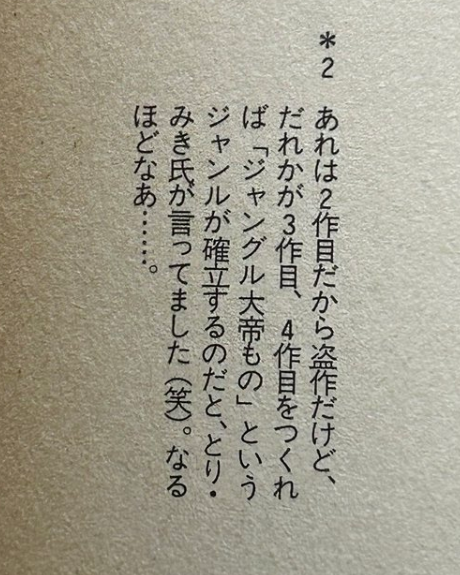 *2 あれは2作目だから盗作だけど、
だれかが3作目、4作目をつくれ
ば「ジャングル大帝もの」という
ジャンルが確立するのだと、とり・
みき氏が言ってました(笑)。なる
ほどなあ……。